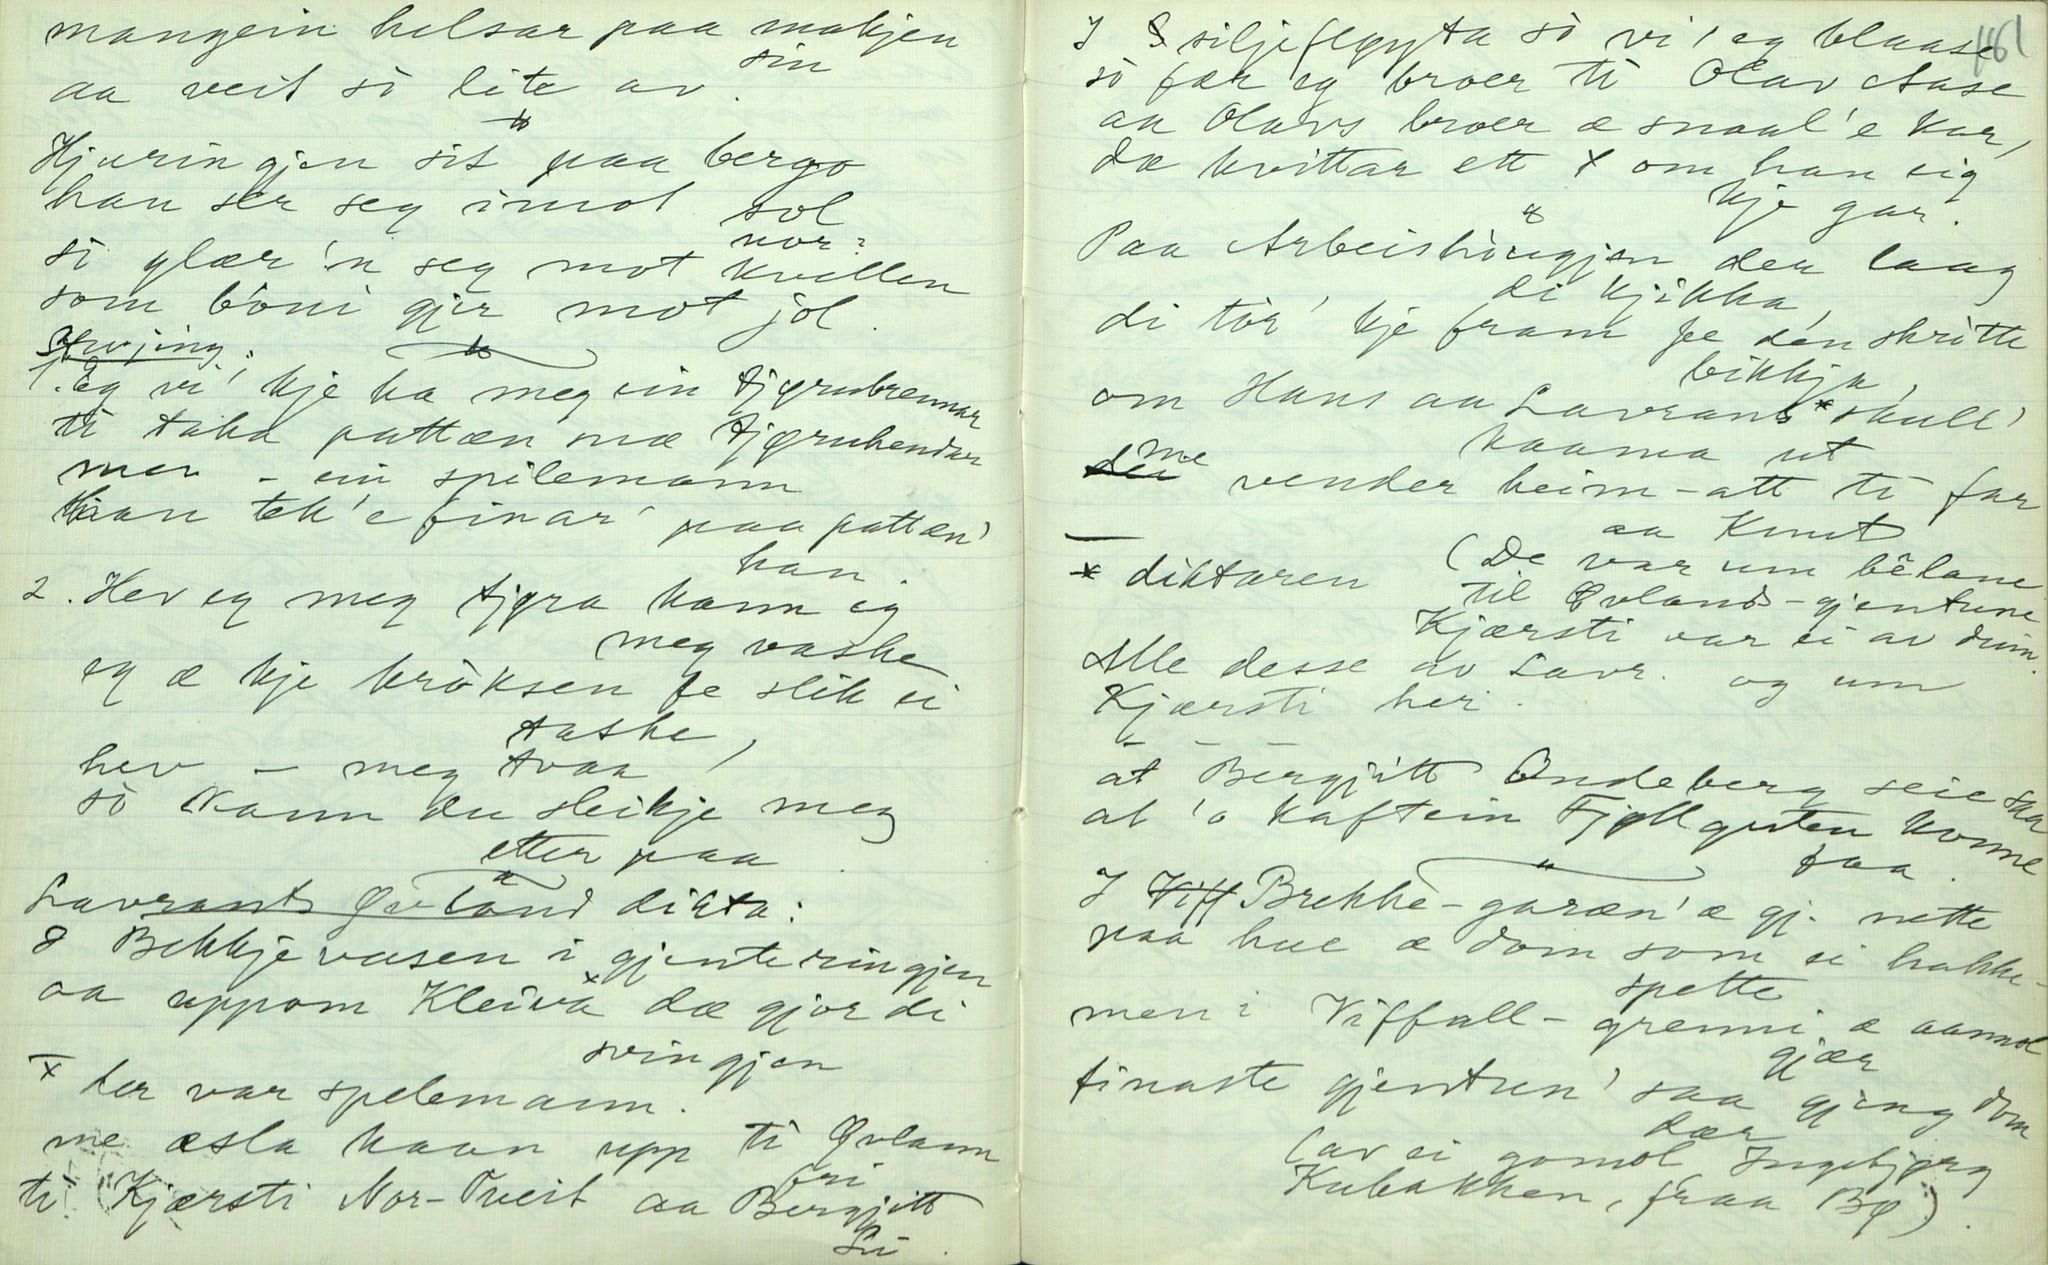 mangein helsar paa makjen
sin
aa veit so lite av.
Hjuringjen sit paa bergo
han ser seg imot sol
so glær'n seg mot nor-
kvillen
som boni gjer mot jol.
Stevjing:
1. Eg vi' kje ha meg ein tjørubrennar
ti taka pattæn mæ tjøruhendar
men - ein spilemann
han tek'e finar' paa pattæn'
han.
2. Hev eg meg tjøra kann eg
meg vaske
eg æ kje bròksen fe slik ei
taske,
hev - meg tvaa'
so kann du sleikje meg
etter paa
Lavrants Øvland dikta:
I Bekkjevasen i gjenteringjen
aa uppom Kleivа x dæ gjor di
svingjen
x der var spelemann.
me æsla kaan upp ti Øvlann
fri
te Kjærsti Nor-Tveit aa Bergjitt
Li.
161
I siljefløyta so vi' eg blaase
so fær eg broer ti Olav Aase
aa Olavs broer æ snaal'e kar,
dæ kvittar ett x om han eig
kje gar.
Paa Arbeishòugjen der laag
di kjikka,
di tòr' kje fram fe den skròtte
bikkja,
om Hans aa Lavrans x skull'
kaama ut
me vender heim-att ti far
aa Knut
x diktaren (De var um bêlane
til Øvlands-gjentune
Kjærsti var ei av deim.
Alle desse av Lavr. og um
Kjærsti her.
at Bergjitt Ondeberg seie saa
at 'o kaftein Fjøllguten konne
faa.
I Brekke-garæn' æ gj. nette
paa hue æ dom som ei hakke-
spette
men i Viffall-grenni æ aamot
gjær
finaste gjentun' saa gjeng dom
dær
(av ei gomol Ingebjørg
Kubakken, fraa Bø).